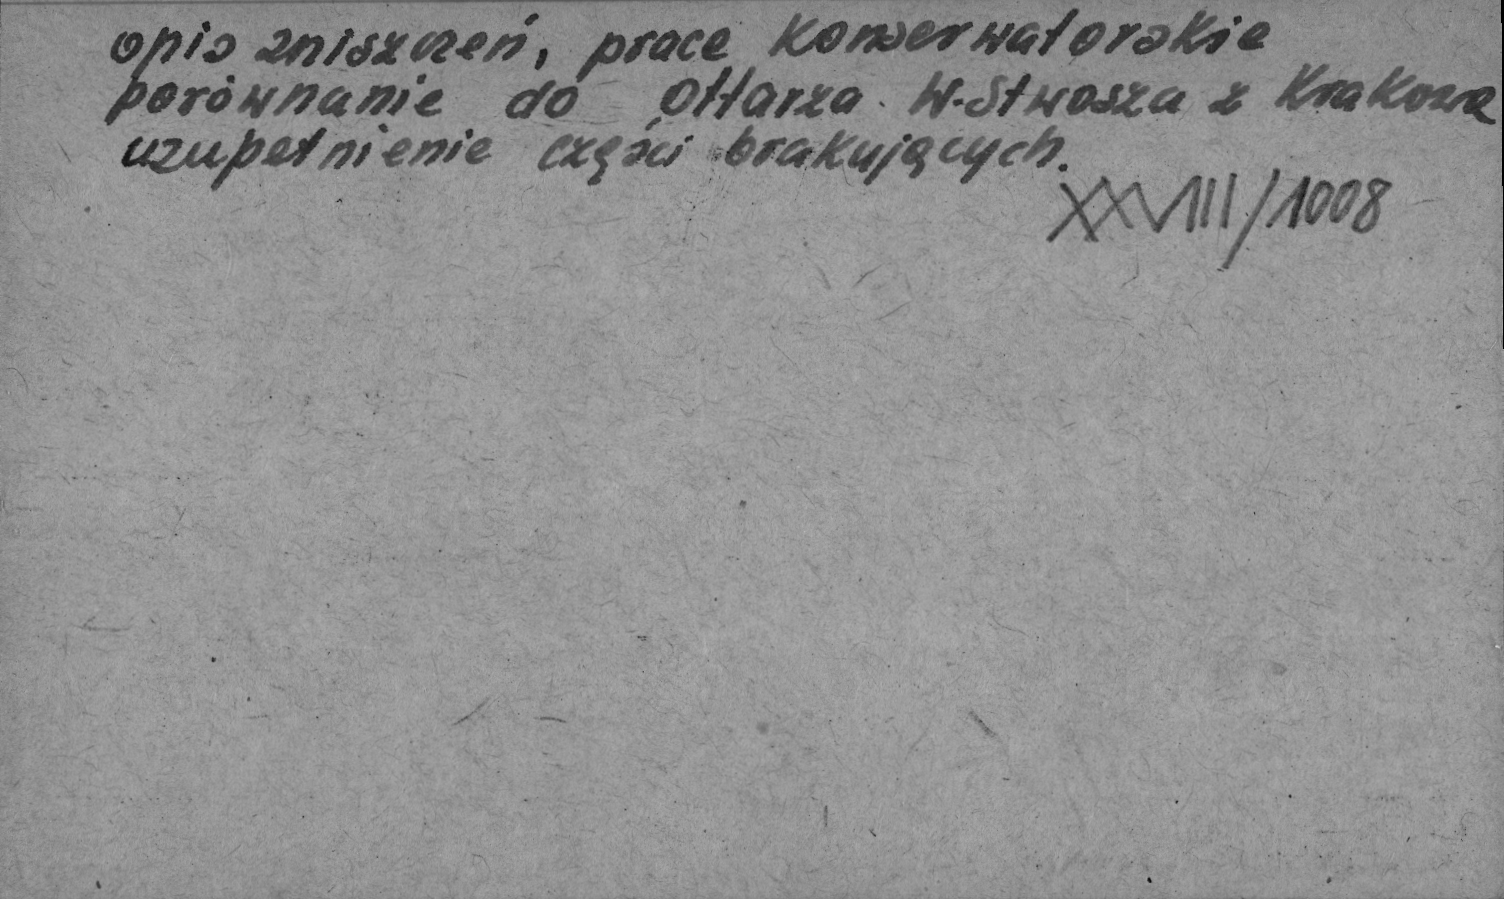 opis zniszczeń, prace konserwatorskie
porównanie do Ołtarza W. Stwosza z Krakowa
uzupełnienie części brakujących.
XXVIII/1008